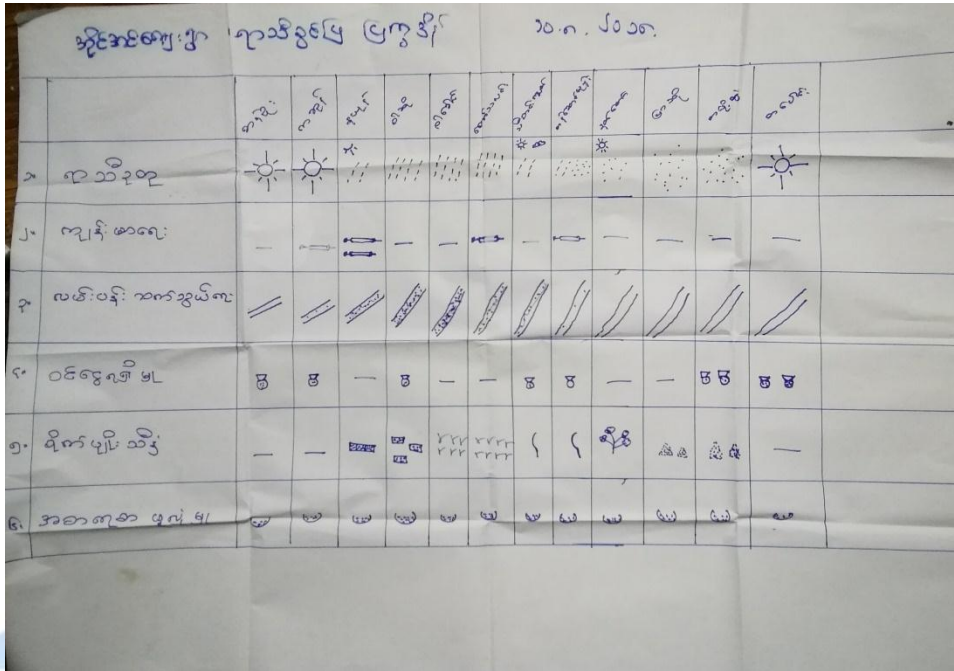 ရာသီခွင်ပြ ပြက္ခဒိန်
တန်ခူး ကဆုန် နယုန် ဝါဆို ဝါခေါင် တော်သလင်း သီတင်းကျွတ် တန်ဆောင်မုန်း နတ်တော် ပြာသို တပို့တွဲ တပေါင်း
၁. ရာသီဥတု
၂. ကျန်းမာရေး
၃. လမ်းပန်း ဆက်သွယ်ရေး
၄. ဝင်ငွေရရှိမှု
၅. စိုက်ပျိုး သီးနှံ
၆. အစားအစာ ဖူလုံမှု